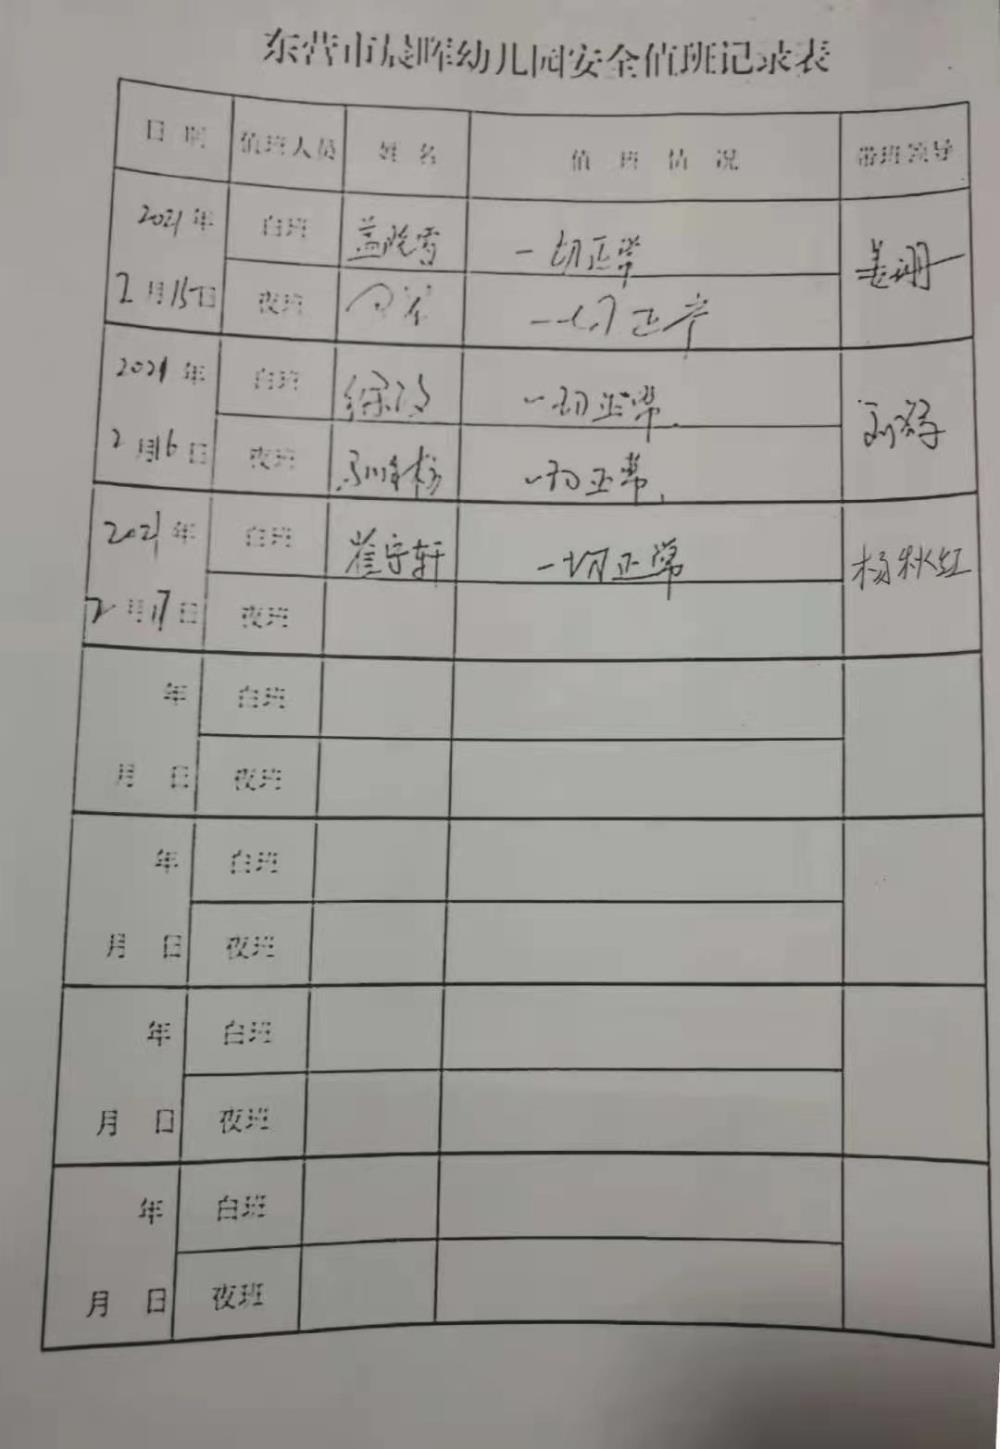 东营市晨晖幼儿园安全值班记录表
日期 值班人员 姓名 值班情况 带班领导
2021年2月15日 白班 一切正常 姜珊
夜班 一切正常
2021年2月16日 白班 徐 一切正常
夜班 一切正常
2021年2月17日 白班 崔宇轩 一切正常 杨秋红
夜班
年 月 日 白班
夜班
年 月 日 白班
夜班
年 月 日 白班
夜班
年 月 日 白班
夜班